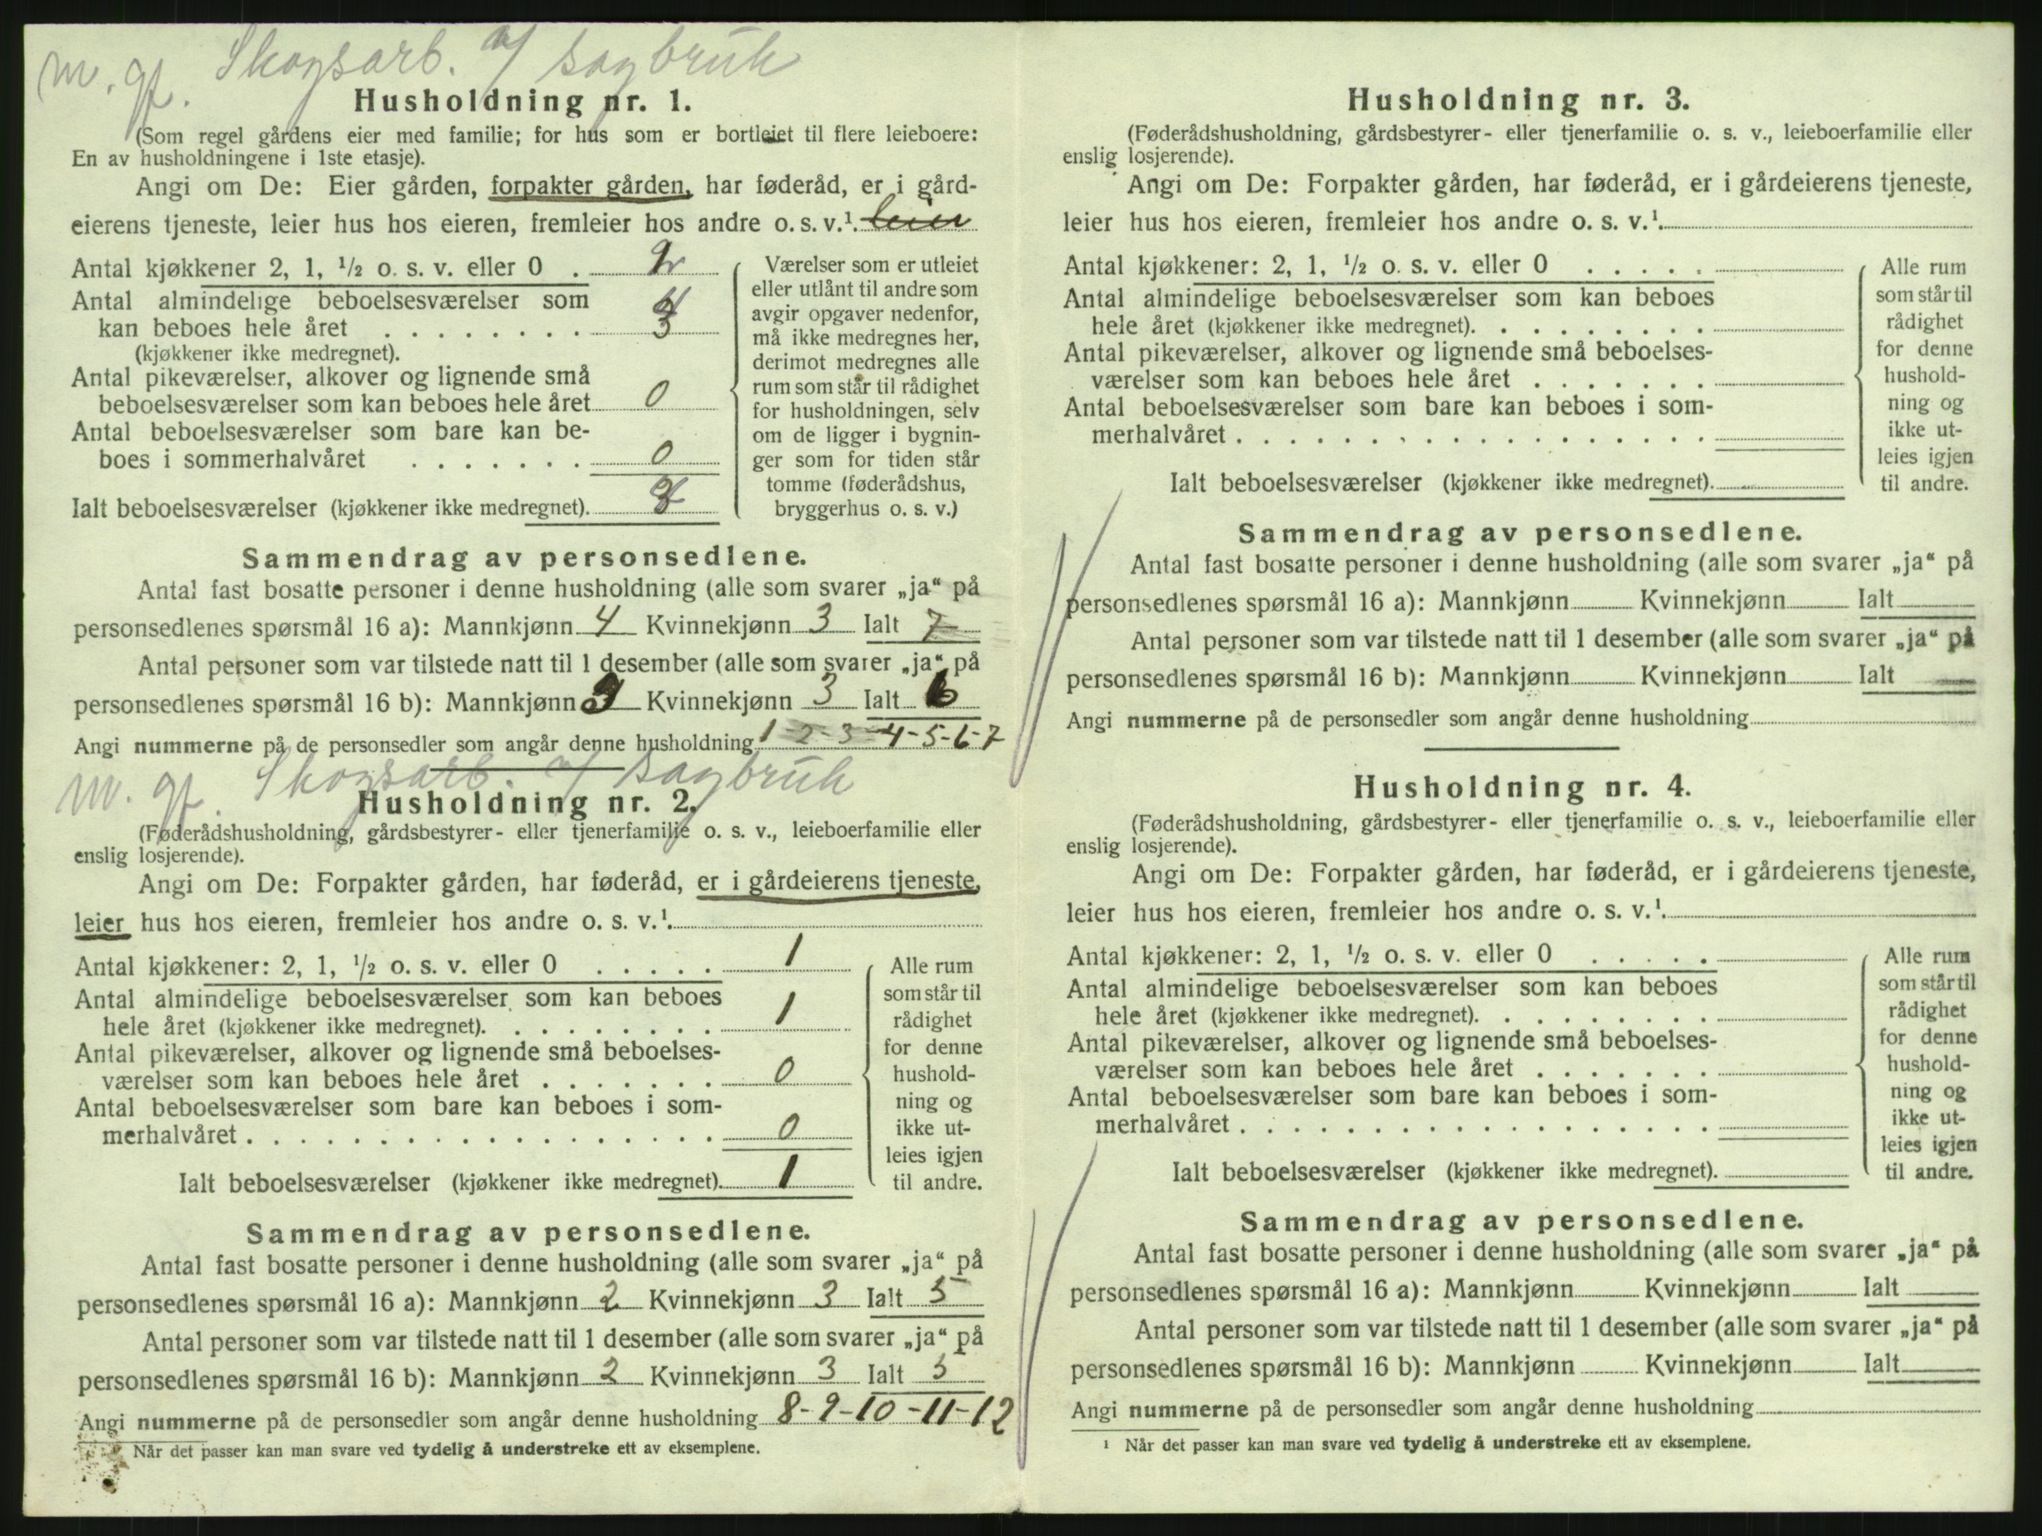 m. gf. Skogsarb. v/ sagbruk
Husholdning nr. 1.
(Som regel gårdens eier med familie; for hus som er bortleiet til flere leieboere:
En av husholdningene i 1ste etasje).
Angi om De: Eier gården, forpakter gården, har føderåd, er i gård-
eierens tjeneste, leier hus hos eieren, fremleier hos andre o. s. v.¹. leier
Antal kjøkkener 2, 1, ½ o. s. v. eller 0 .
Antal almindelige beboelsesværelser som
kan beboes hele året . . . . . . . .
(kjøkkener ikke medregnet).
Antal pikeværelser, alkover og lignende små
beboelsesværelser som kan beboes hele året 0
Antal beboelsesværelser som bare kan be-
boes i sommerhalvåret . . . . . . . 0
Ialt beboelsesværelser (kjøkkener ikke medregnet).
Værelser som er utleiet
eller utlånt til andre som
avgir opgaver nedenfor,
må ikke medregnes her,
derimot medregnes alle
rum som står til rådighet
for husholdningen, selv
om de ligger i bygnin-
ger som for tiden står
tomme (føderådshus,
bryggerhus o. s. v.)
Sammendrag av personsedlene.
Antal fast bosatte personer i denne husholdning (alle som svarer „ja“ på
personsedlenes spørsmål 16 a): Mannkjønn 4 Kvinnekjønn 3 Ialt 7
Antal personer som var tilstede natt til 1 desember (alle som svarer „ja“ på
personsedlenes spørsmål 16 b): Mannkjønn 3 Kvinnekjønn 3 Ialt 6
Angi nummerne på de personsedler som angår denne husholdning 1-2-3-4-5-6-7
m. gf. Skogsarb. v/ sagbruk
Husholdning nr. 2.
(Føderådshusholdning, gårdsbestyrer- eller tjenerfamilie o. s. v., leieboerfamilie eller
enslig losjerende).
Angi om De: Forpakter gården, har føderåd, er i gårdeierens tjeneste,
leier hus hos eieren, fremleier hos andre o. s. v.¹.
Antal kjøkkener: 2, 1, ½ o. s. v. eller 0 . . . . . 1
Antal almindelige beboelsesværelser som kan beboes
hele året (kjøkkener ikke medregnet). . . . . . . . . 1
Antal pikeværelser, alkover og lignende små beboelses-
værelser som kan beboes hele året . . . . . . . 0
Antal beboelsesværelser som bare kan beboes i som-
merhalvåret . . . . . . . . . . . . . . . . . . 0
Ialt beboelsesværelser (kjøkkener ikke medregnet). 1
Alle rum
som står til
rådighet
for denne
hushold-
ning og
ikke ut-
leies igjen
til andre.
Sammendrag av personsedlene.
Antal fast bosatte personer i denne husholdning (alle som svarer „ja“ på
personsedlenes spørsmål 16 a): Mannkjønn 2 Kvinnekjønn 3 Ialt 5
Antal personer som var tilstede natt til 1 desember (alle som svarer „ja“ på
personsedlenes spørsmål 16 b): Mannkjønn 2 Kvinnekjønn 3 Ialt 5
Angi nummerne på de personsedler som angår denne husholdning 8-9-10-11-12
Når det passer kan man svare ved tydelig å understreke ett av eksemplene.
Husholdning nr. 3.
(Føderådshusholdning, gårdsbestyrer- eller tjenerfamilie o. s. v., leieboerfamilie eller
enslig losjerende).
Angi om De: Forpakter gården, har føderåd, er i gårdeierens tjeneste,
leier hus hos eieren, fremleier hos andre o. s. v.¹.
Antal kjøkkener: 2, 1, ½ o. s. v. eller 0 . . . . .
Antal almindelige beboelsesværelser som kan beboes
hele året (kjøkkener ikke medregnet). . . . . . . . .
Antal pikeværelser, alkover og lignende små beboelses-
værelser som kan beboes hele året . . . . . . .
Antal beboelsesværelser som bare kan beboes i som-
merhalvåret . . . . . . . . . . . . . . . . . .
Ialt beboelsesværelser (kjøkkener ikke medregnet).
Alle rum
som står til
rådighet
for denne
hushold-
ning og
ikke ut-
leies igjen
til andre.
Sammendrag av personsedlene.
Antal fast bosatte personer i denne husholdning (alle som svarer „ja“ på
personsedlenes spørsmål 16 a): Mannkjønn Kvinnekjønn Ialt
Antal personer som var tilstede natt til 1 desember (alle som svarer „ja“ på
personsedlenes spørsmål 16 b): Mannkjønn Kvinnekjønn Ialt
Angi nummerne på de personsedler som angår denne husholdning
Husholdning nr. 4.
(Føderådshusholdning, gårdsbestyrer- eller tjenerfamilie o. s. v., leieboerfamilie eller
enslig losjerende).
Angi om De: Forpakter gården, har føderåd, er i gårdeierens tjeneste,
leier hus hos eieren, fremleier hos andre o. s. v.¹.
Antal kjøkkener: 2, 1, ½ o. s. v. eller 0 . . . . .
Antal almindelige beboelsesværelser som kan beboes
hele året (kjøkkener ikke medregnet). . . . . . . . .
Antal pikeværelser, alkover og lignende små beboelses-
værelser som kan beboes hele året . . . . . . .
Antal beboelsesværelser som bare kan beboes i som-
merhalvåret . . . . . . . . . . . . . . . . . .
Ialt beboelsesværelser (kjøkkener ikke medregnet).
Alle rum
som står til
rådighet
for denne
hushold-
ning og
ikke ut-
leies igjen
til andre.
Sammendrag av personsedlene.
Antal fast bosatte personer i denne husholdning (alle som svarer „ja“ på
personsedlenes spørsmål 16 a): Mannkjønn Kvinnekjønn Ialt
Antal personer som var tilstede natt til 1 desember (alle som svarer „ja“ på
personsedlenes spørsmål 16 b): Mannkjønn Kvinnekjønn Ialt
Angi nummerne på de personsedler som angår denne husholdning
¹ Når det passer kan man svare ved tydelig å understreke ett av eksemplene.